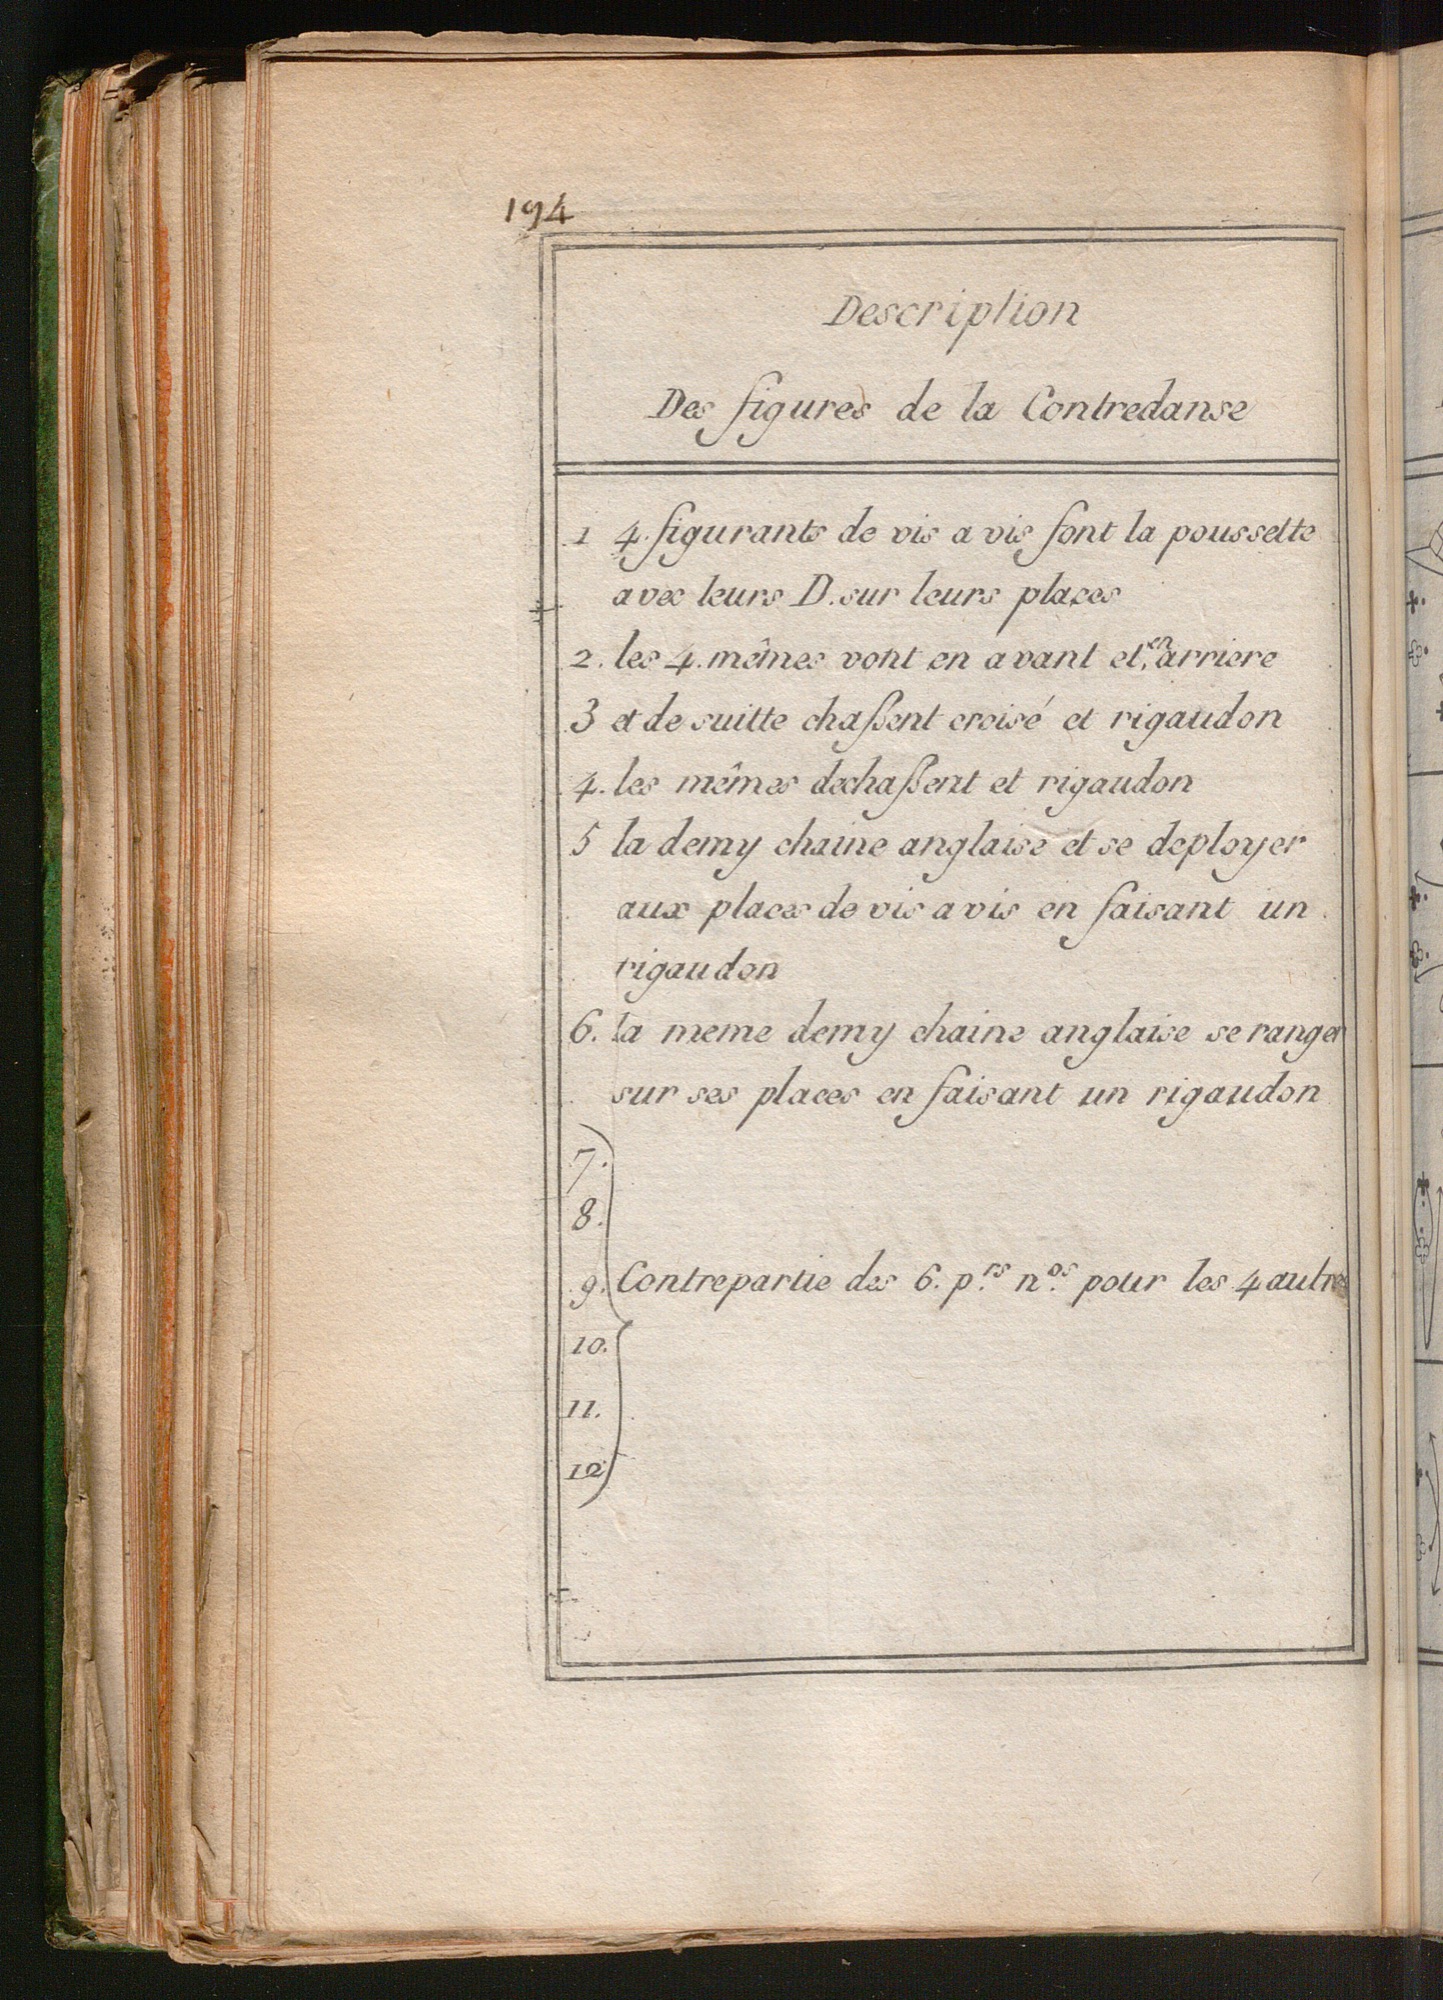 194
Description
Des figures de la Contredanse
1 4. figurants de vis a vis font la poussette
avec leurs D. sur leurs places
2. les 4. mêmes vont en avant et en arriere
3 et de suitte chaſsent croisé et rigaudon
4. les mêmes dechaſsent et rigaudon
5 la demy chaine anglaise et se deployer
aux places de vis a vis en faisant un
rigaudon
6. la meme demy chaine anglaise se ranger
sur ses places en faisant un rigaudon
7.
8.
9. Contrepartie des 6. p.rs n.os pour les 4 autres
10.
11.
12